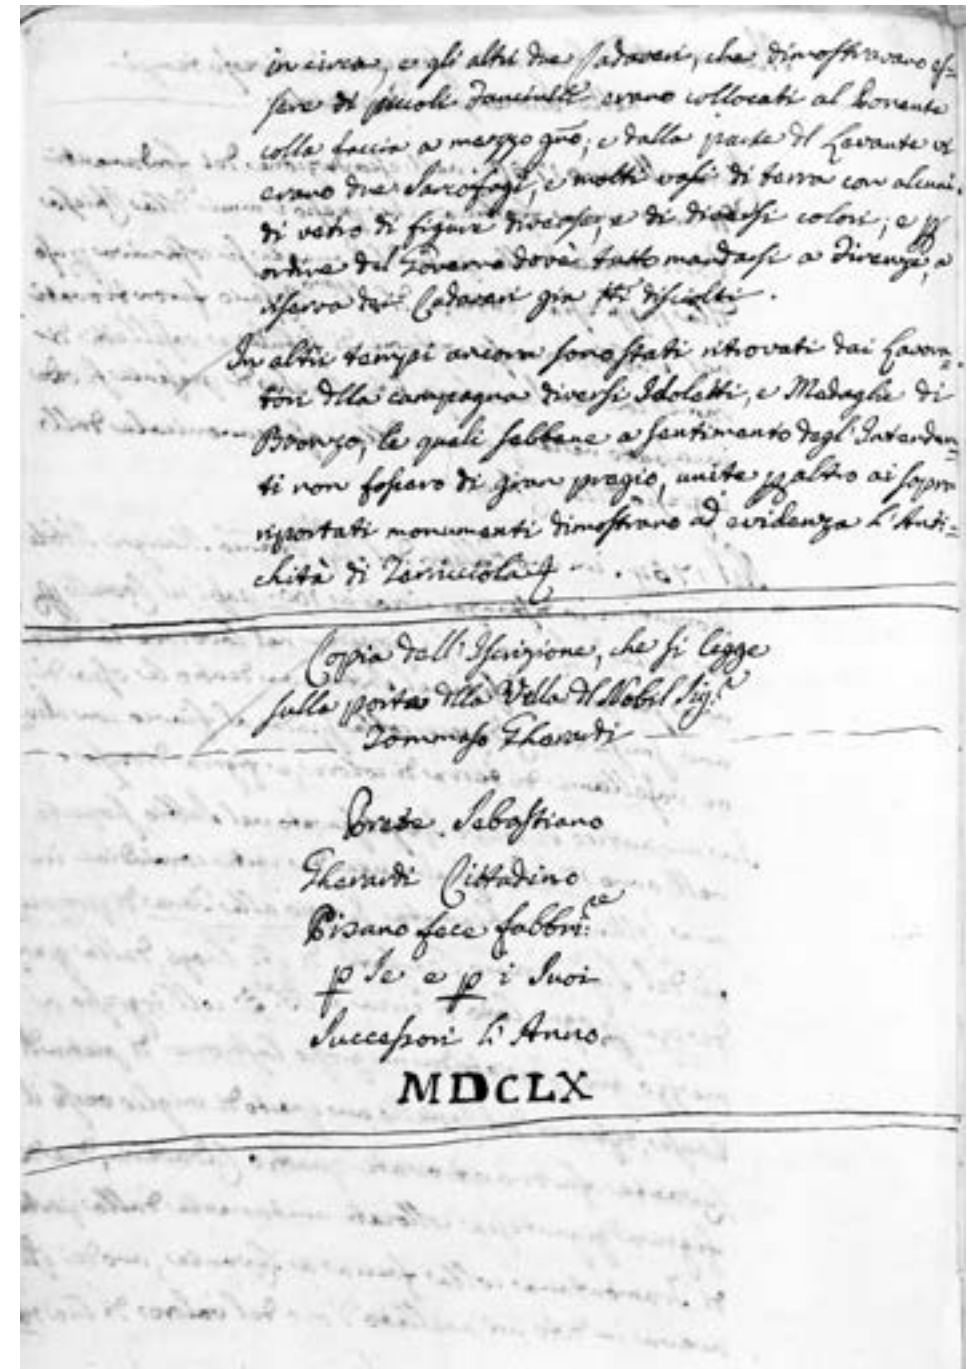 in circa, e gli altri due Cadaveri, che dimostravano es-
sere di piccoli Fanciulli erano collocati al Ponente
colla faccia a mezzo gno; e dalla parte dl Levante vi
erano due Sarcofagi, e molti vasi di terra con alcuni
di vetro di figure diverse, e di diversi colori; e p
ordine del Governo dovè tutto mandarsi a Firenze, a
riserva dei Cadaveri gia tti disciolti.
In altri tempi ancora sono stati ritrovati dai Lavora-
tori dlla campagna diversi Idoletti, e Medaglie di
Bronzo, le quali sebbene a sentimento degl'Intenden-
ti non fossero di gran pregio, unite p altro ai sopra
riportati monumenti dimostrano ad evidenza l'Anti-
chità di Terricciola
Copia dell'Iscrizione, che si legge
sulla porta dlla Villa dl Nobil Sig.r
Tommaso Gherardi
Prete Sebastiano
Gherardi Cittadino
Pisano fece fabbri:ce
p Se e p i Suoi
Successori L'Anno
MDCLX